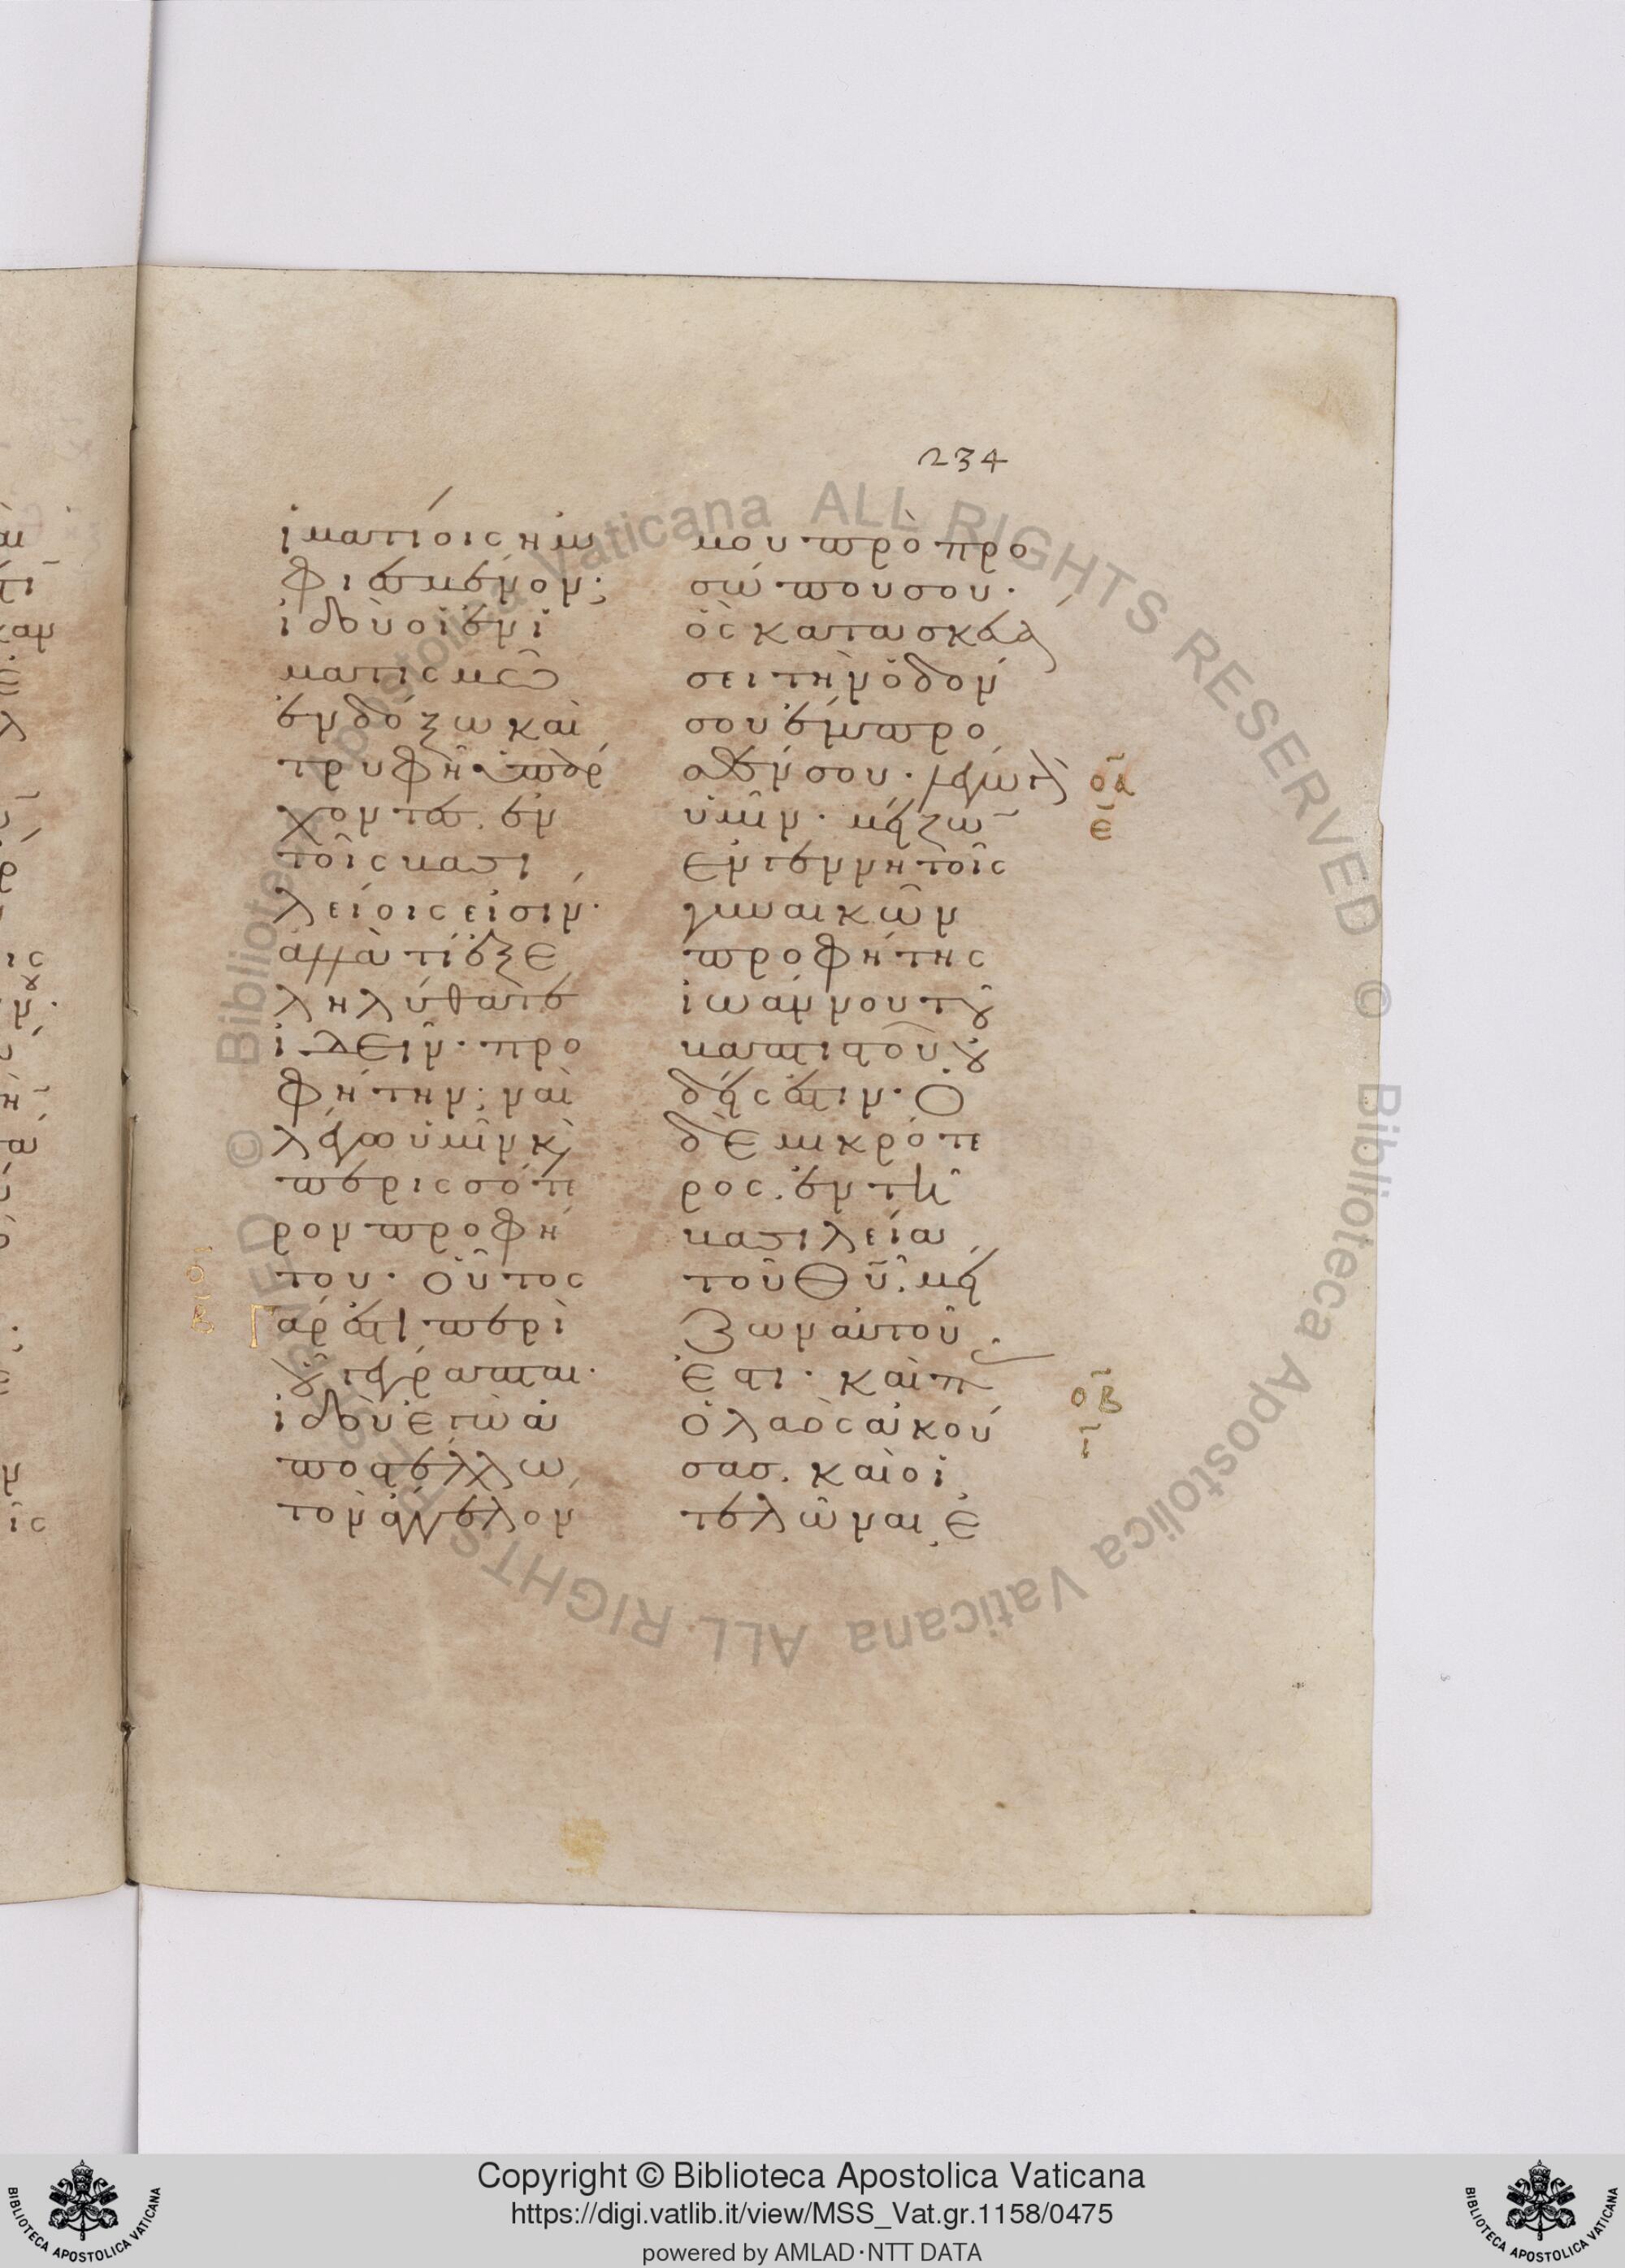 234
ἱματίοις ἠμ
φιεσμένον;
ἰδοὺ οἱ ἐν ἱ
ματισμῶ
ἐνδόξω καὶ
τρυφῆ ὑπάρ
χοντες, ἐν
τοῖς βασι
λείοις εἰσίν·
ἀλλὰ τί ἐξε
ληλύθατε
ἰδεῖν· προ
φήτην; ναὶ
λέγω ὑμῖν κὶ
περισσότε
ρον προφή
του· οὗτος
Γάρ ἐστι περὶ
οὗ γέγραπται·
ἰδοὺ ἐγὼ ἀ
ποστέλλω
τὸν ἄγγελον
μου πρὸ προ
σώπου σου·
ὃς κατασκευά
σει τὴν ὁδόν
σου ἔμπρο
σθέν σου· λέγω γὰρ
ὑμῖν· μείζω
ἐν γεννητοῖς
γυναικῶν
προφήτης
ἰωάννου τοῦ
βαπτιστοῦ οὐ
δείς ἐστιν· Ὁ
δὲ μικρότε
ρος, ἐν τῆ
βασιλεία
τοῦ Θῦ, μεί
ζων αὐτοῦ
ἐστι· καὶ π
ὁ λαὸς ἀκού
σας, καὶ οἱ
τελῶναι, ἐ
οα
ε
οβ
ι
Copyright © Biblioteca Apostolica Vaticana
https://digi.vatlib.it/view/MSS_Vat.gr.1158/0475
powered by AMLAD·NTT DATA